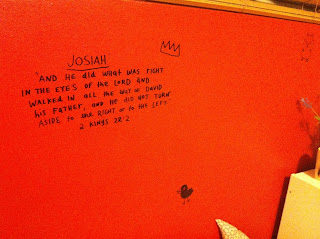 JOSIAH
"AND HE did what was right
IN THE EYES OF the LORD AND
WALKED IN all the way of DAVID
his FATHER, and HE did NOT TURN
ASIDE to the RIGHT or to the LEFT
2 KINGS 22:2